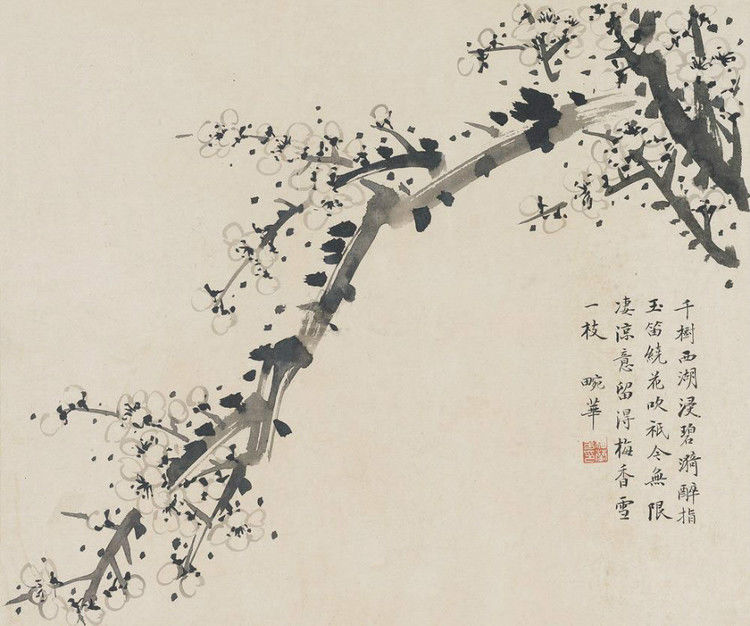 千樹西湖浸碧漪醉指
玉笛繞花吹祇今無限
凄涼意留得梅香雪
一枝 畹華